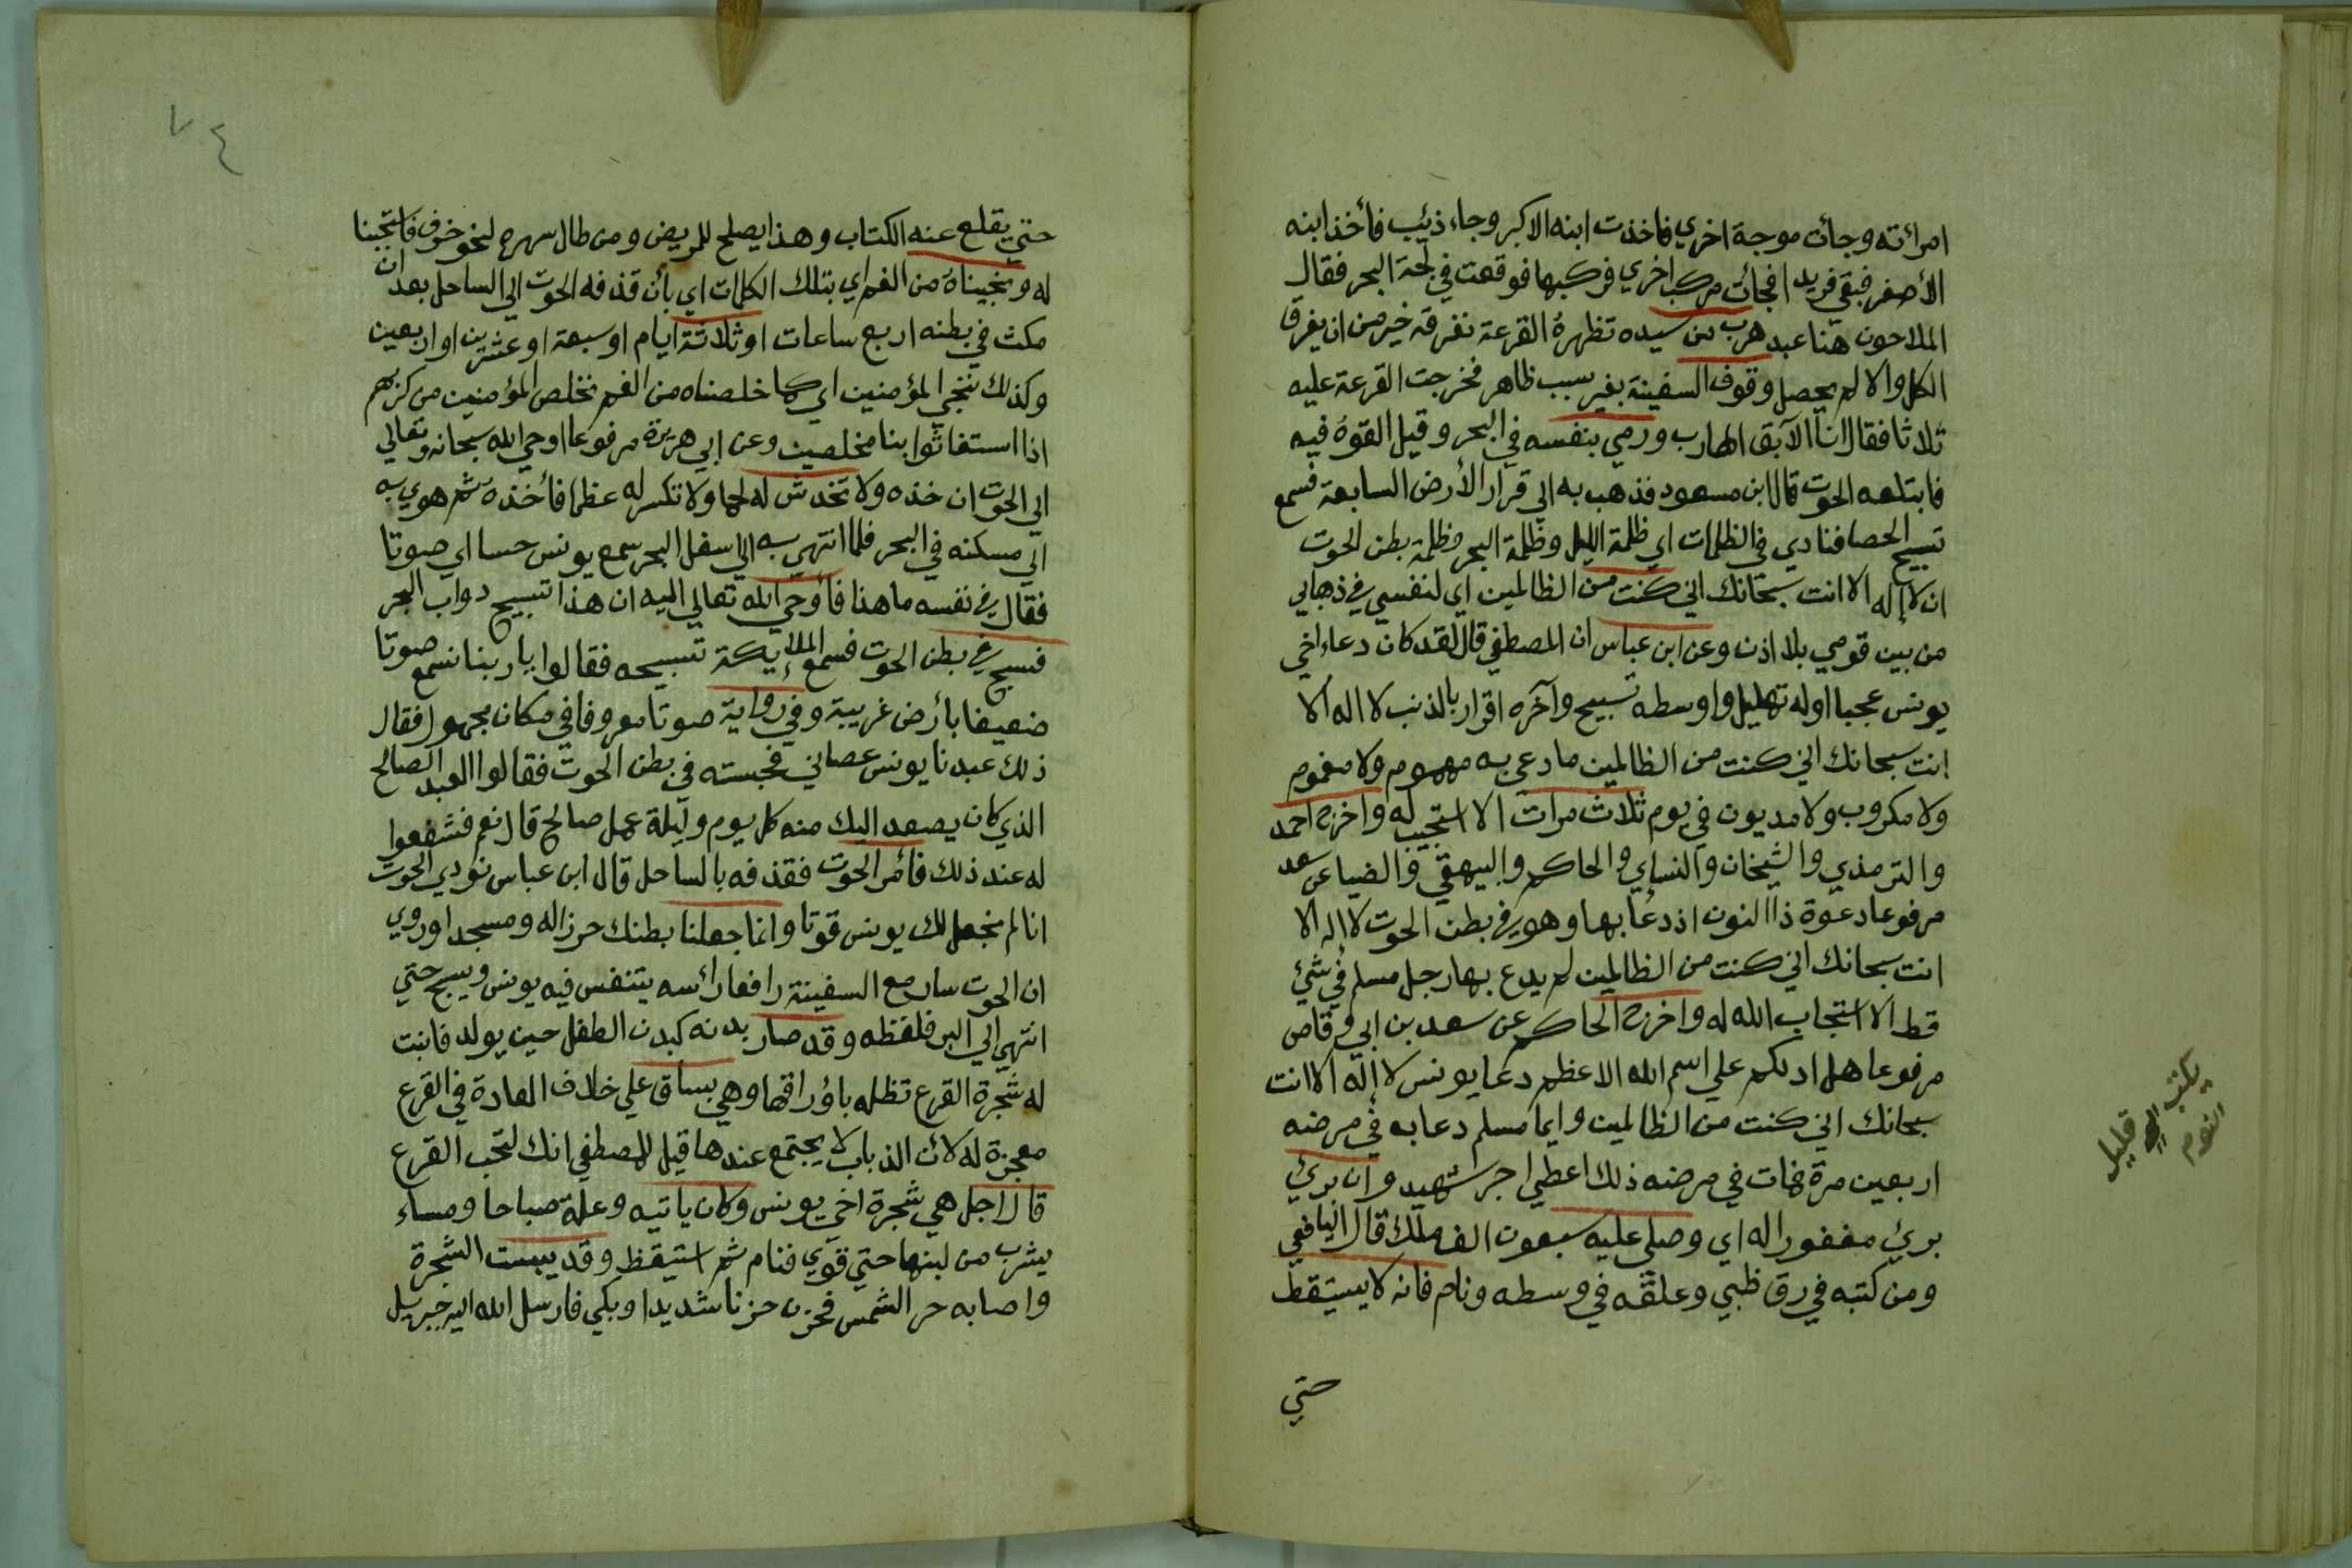 امرائته وجأت موجة اخري فاخذت ابنه الاكبر وجاء ذئيب فأخذ ابنه
الأصغر فبقي فريدا فجائت مركب اخري فركبها فوقعت في لجة البحر فقال
الملاحون هنا عبد هرب من سيده تظهره القرعة نغرقه خير من ان يغرق
الكل والا لم يحصل وقوف السفينة بغير سبب ظاهر فخرجت القرعة عليه
ثلاثا فقال انا الآبق الهارب ورمي بنفسه في البحر وقيل القوه فيه
فابتلعه الحوت قال ابن مسعود فذهب به الي قرار الأرض السابعة فسمع
تسبيح الحصا فنادي في الظلمات اي ظلمة الليل وظلمة البحر وظلمة بطن الحوت
ان لا إله الا انت سبحانك اني كنت من الظالمين اي لنفسي في ذهابي
من بين قومي بلا اذن وعن ابن عباس ان المصطفي قال لقد كان دعاء اخي
يونس عجبا اوله تهليل واوسطه تسبيح وآخره اقرار بالذنب لا اله الا
انت سبحانك اني كنت من الظالمين ما دعي به مهموم ولا مغموم
ولا مكروب ولا مديون في يوم ثلاث مرات الا استجيب له واخرج احمد
والترمذي والشيخان والنساي والحاكم والبيهقي والضيا عن سعد
مرفوعا دعوة ذا النون اذ دعا بها وهو في بطن الحوت لا اله الا
انت سبحانك اني كنت من الظالمين لم يدع بها رجل مسلم في شئ
قط الا استجاب الله له واخرج الحاكم عن سعد بن ابي وقاص
مرفوعا هل ادلكم علي اسم الله الاعظم دعا يونس لا إله الا انت
سبحانك اني كنت من الظالمين وايما مسلم دعا به في مرضه
اربعين مرة فمات في مرضه ذلك اعطي اجر شهيد وان بري
بري مغفورا له اي وصلي عليه سبعون الف ملك قال اليافعي
ومن كتبه في رق ظبي وعلقه في وسطه ونام فانه لا يستيقظ
حتي
يكتب
قليل
النوم
٧٤
حتي يقلع عنه الكتاب وهذا يصلح للمريض ومن طال سهره لنحو خوف فاستجبنا
له ونجيناه من الغم اي بتلك الكلمات اي بأن قذفه الحوت الي الساحل بعد ان
مكث في بطنه اربع ساعات او ثلاثة ايام او سبعة او عشرين او اربعين
وكذلك ننجي المؤمنين اي كما خلصناه من الغم نخلص المؤمنين من كربهم
اذا استغاثوا بنا مخلصين وعن ابي هريرة مرفوعا اوحي الله سبحانه وتعالي
الي الحوت ان خذه ولا تخدش له لحما ولا تكسر له عظما فأخذه ثم هوي به
الي مسكنه في البحر فلما انتهي به الي اسفل البحر سمع يونس حسا اي صوتا
فقال في نفسه ما هذا فأوحي الله تعالي اليه ان هذا تسبيح دواب البحر
فسبح في بطن الحوت فسمع الملائيكة تسبيحه فقالوا يا ربنا نسمع صوتا
ضعيفا بأرض غريبة وفي رواية صوتا معروفا في مكان مجهول فقال
ذلك عبدنا يونس عصاني فحبسته في بطن الحوت فقالوا العبد الصالح
الذي كان يصعد اليك منه كل يوم وليلة عمل صالح قال نعم فشفعوا
له عند ذلك فأمر الحوت فقذفه بالساحل قال ابن عباس نودي الحوت
انا لم نجعل لك يونس قوتا وانما جعلنا بطنك حرزا له ومسجدا وروي
ان الحوت سار مع السفينة رافعا رائسه يتنفس فيه يونس ويسبح حتي
انتهي الي البر فلفظه وقد صار بدنه كبدن الطفل حين يولد فانبت
له شجرة القرع تظله باؤراقها وهي بساق علي خلاف العادة في القرع
معجزة له لائن الذباب لا يجتمع عندها قيل للمصطفي انك لتحب القرع
قال اجل هي شجرة اخي يونس وكان ياتيه وعلة صباحا ومساء
يشرب من لبنها حتي قوي فنام ثم استيقظ وقد يبست الشجرة
واصابه حر الشمس فحزن حزنا شديدا وبكي فارسل الله اليه جبريل